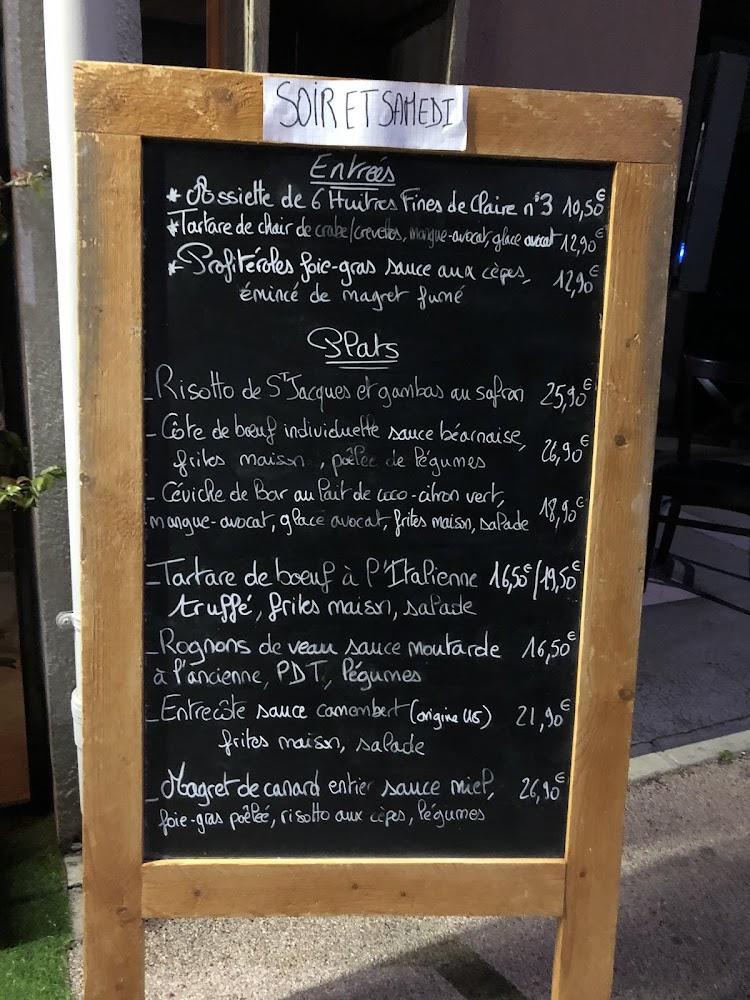 SOIR ET SAMEDI
Entrées
* Assiette de 6 Huitres Fines de Claire n°3 10,50€
* Tartare de chair de crabe/crevettes, mangue-avocat, glace avocat 12,90€
* Profitéroles foie-gras sauce aux cèpes, 12,90€
émincé de magret fumé
Plats
- Risotto de St Jacques et gambas au safran 25,90€
- Côte de bœuf individuelle sauce béarnaise, 26,90€
frites maison, poêlée de légumes
- Céviche de Bar au lait de coco-citron vert, 18,90€
mangue-avocat, glace avocat, frites maison, salade
- Tartare de boeuf à l'Italienne 16,50€/19,50€
truffé, frites maison, salade
- Rognons de veau sauce moutarde 16,50€
à l'ancienne, PDT, légumes
- Entrecôte sauce camembert (origine US) 21,90€
frites maison, salade
- Magret de canard entier sauce miel, 26,90€
foie-gras poêlé, risotto aux cèpes, légumes